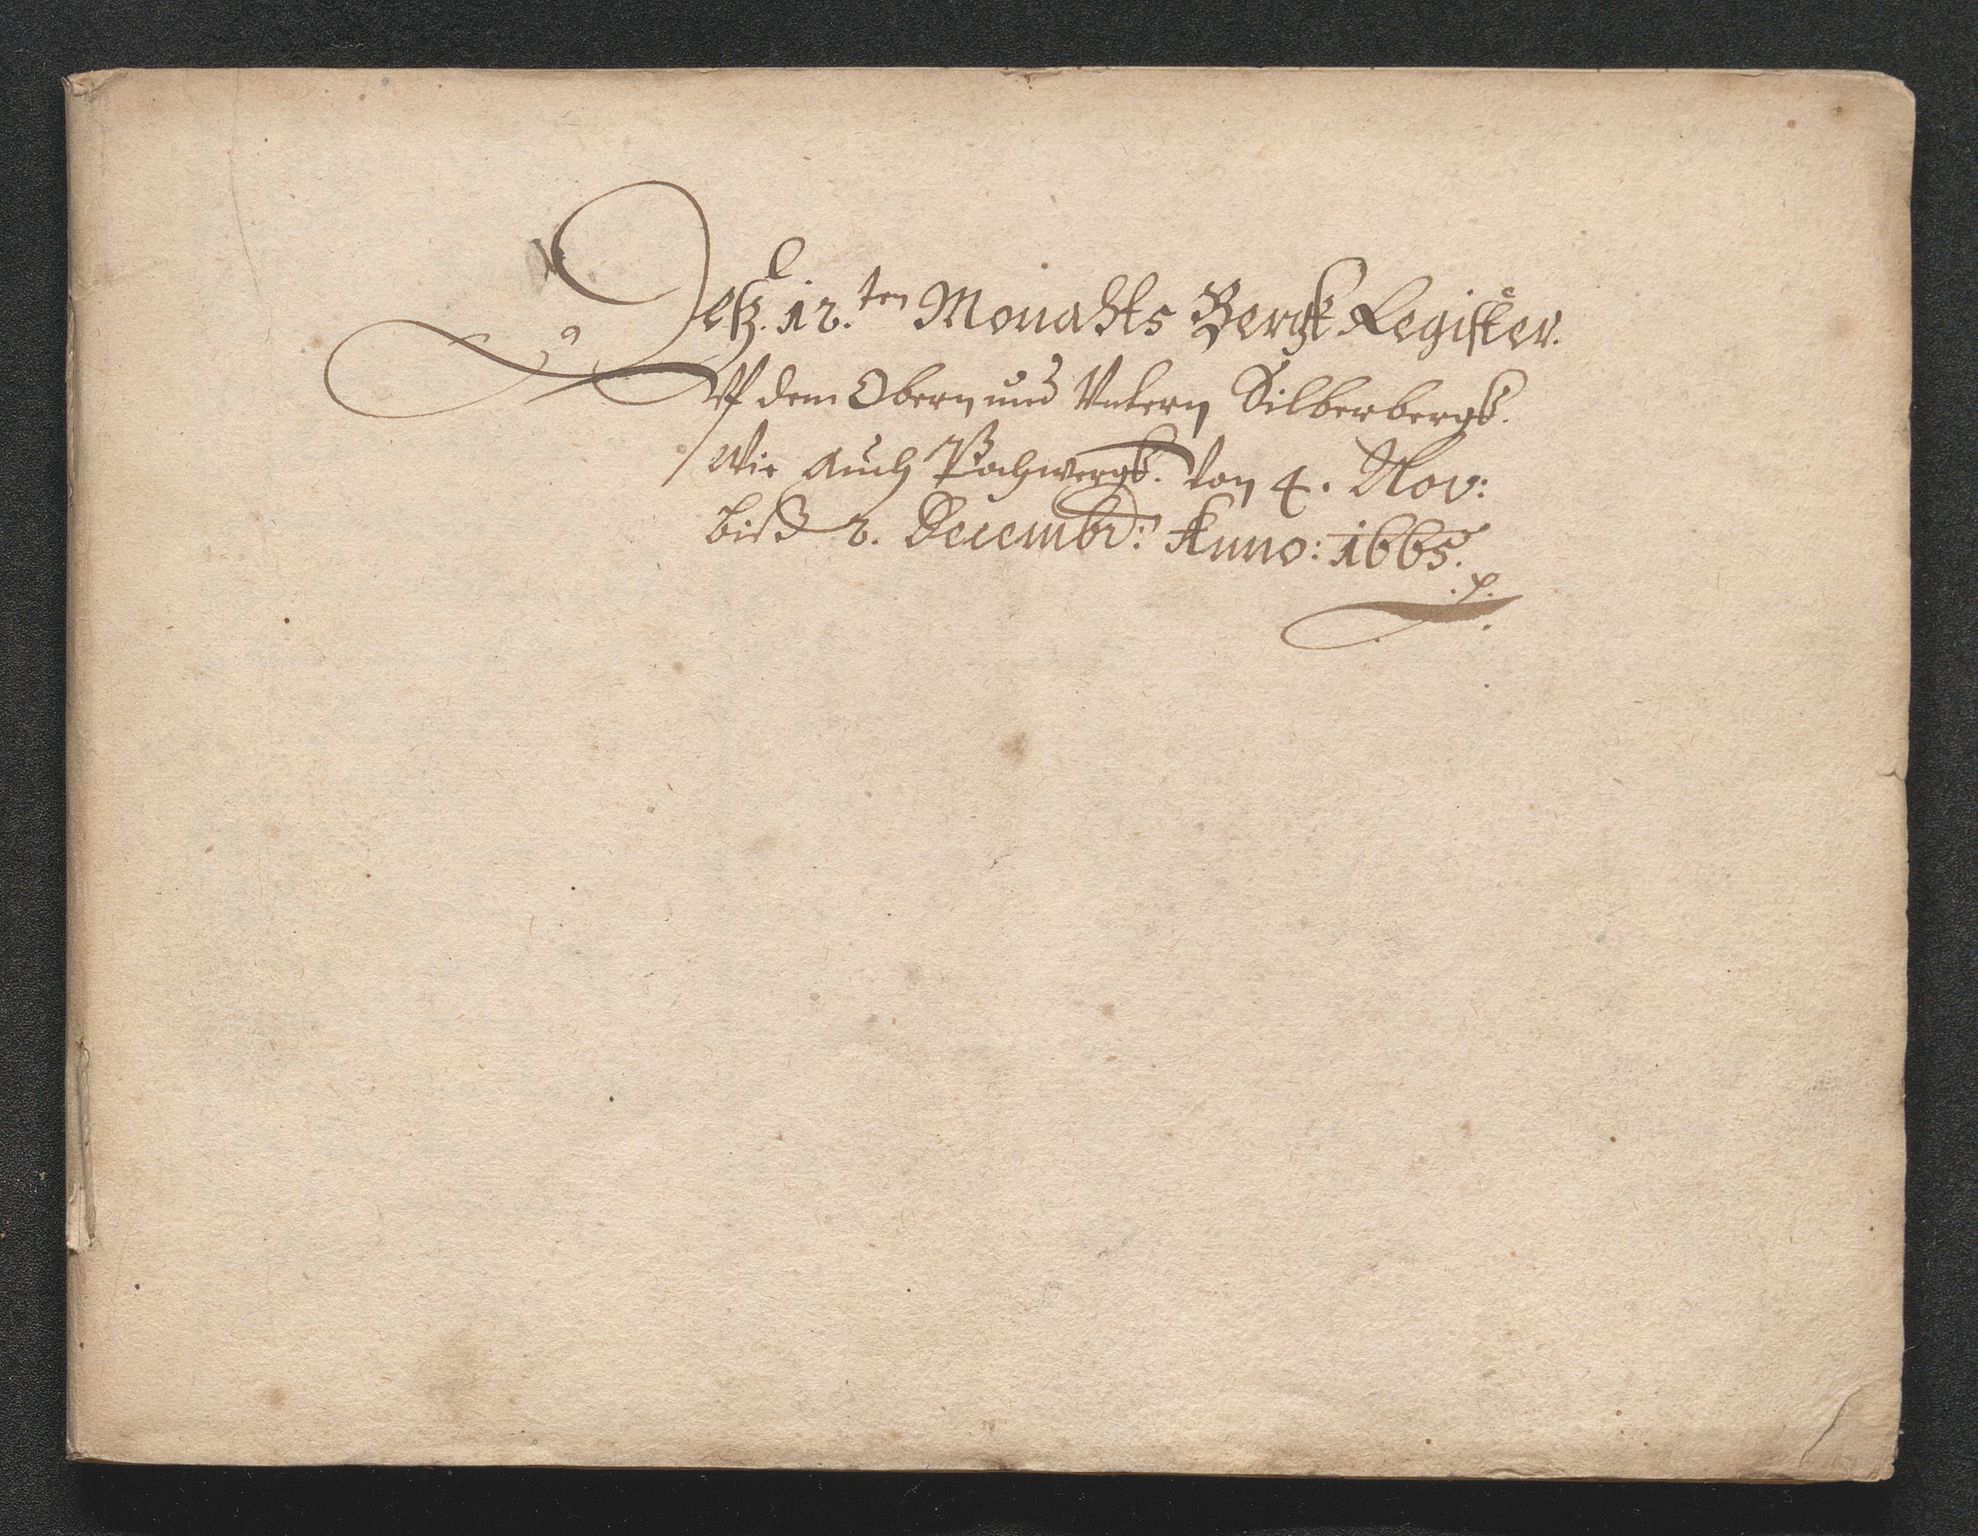 Deß. 12.ten Monahts Bergk Register.
Vf dem Obern und Untern Silberbergk.
Wie auch Pochwergk. Von 4. Nov:
biß 2. Decembr: Anno: 1665.